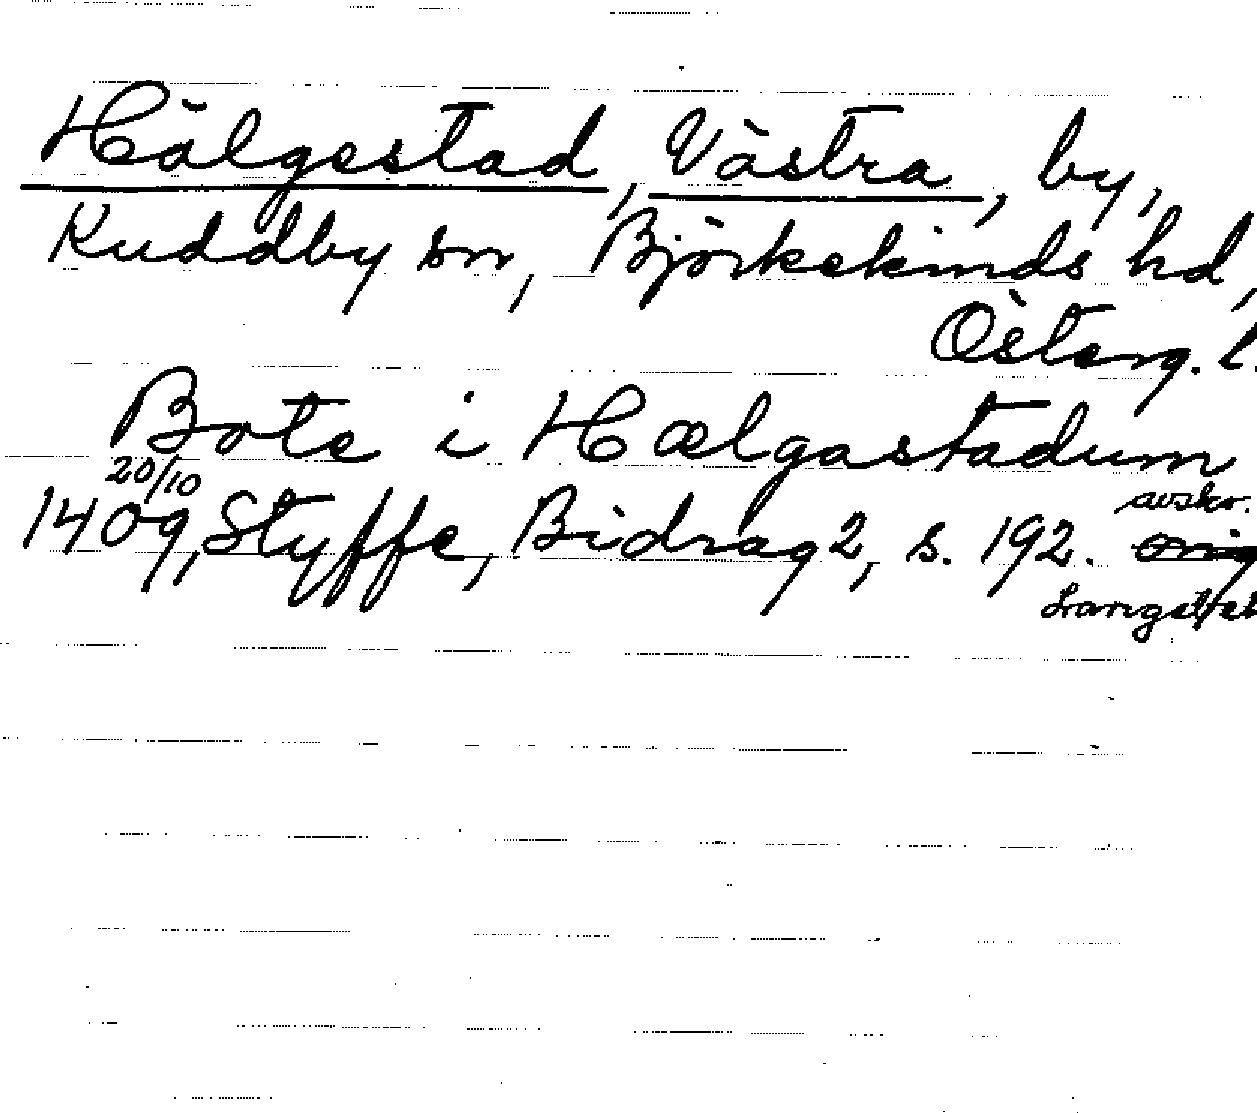 Hälgestad, Västra, by,
Kuddby sn, Björkekinds hd,
Österg. l.
Bote i Hælgastadum
20/10
1409, Styffe, Bidrag 2, s. 192. orig
avskr.